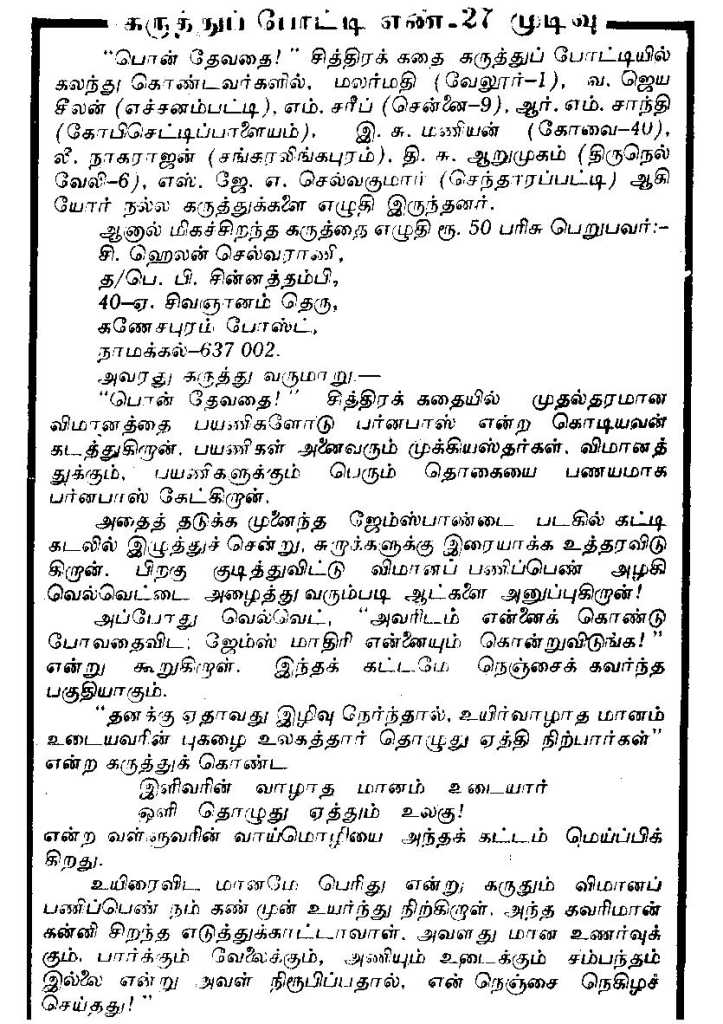 கருத்துப் போட்டி எண்-27 முடிவு
“பொன் தேவதை!” சித்திரக் கதை கருத்துப் போட்டியில்
கலந்து கொண்டவர்களில், மலர்மதி (வேலூர்-1), வ. ஜெய
சீலன் (எச்சனம்பட்டி), எம். சரீப் (சென்னை-9), ஆர். எம். சாந்தி
(கோபிசெட்டிப்பாளையம்), இ. சு. மணியன் (கோவை-40),
லீ. நாகராஜன் (சங்கரலிங்கபுரம்), தி. சு. ஆறுமுகம் (திருநெல்
வேலி-6), எஸ். ஜே. எ. செல்வகுமார் (செந்தாரப்பட்டி) ஆகி
யோர் நல்ல கருத்துக்களை எழுதி இருந்தனர்.
ஆனால் மிகச்சிறந்த கருத்தை எழுதி ரூ. 50 பரிசு பெறுபவர்:-
சி. ஹெலன் செல்வராணி,
த/பெ. பி. சின்னத்தம்பி,
40-ஏ. சிவஞானம் தெரு,
கணேசபுரம் போஸ்ட்,
நாமக்கல்-637 002.
அவரது கருத்து வருமாறு.—
“பொன் தேவதை!” சித்திரக் கதையில் முதல்தரமான
விமானத்தை பயணிகளோடு பர்னபாஸ் என்ற கொடியவன்
கடத்துகிறான். பயணிகள் அனைவரும் முக்கியஸ்தர்கள். விமானத்
துக்கும், பயணிகளுக்கும் பெரும் தொகையை பணயமாக
பர்னபாஸ் கேட்கிறான்.
அதைத் தடுக்க முனைந்த ஜேம்ஸ்பாண்டை படகில் கட்டி
கடலில் இழுத்துச் சென்று, சுறாக்களுக்கு இரையாக்க உத்தரவிடு
கிறான். பிறகு குடித்துவிட்டு விமானப் பணிப்பெண் அழகி
வெல்வெட்டை அழைத்து வரும்படி ஆட்களை அனுப்புகிறான்!
அப்போது வெல்வெட், “அவரிடம் என்னைக் கொண்டு
போவதைவிட; ஜேம்ஸ் மாதிரி என்னையும் கொன்றுவிடுங்க!”
என்று கூறுகிறாள். இந்தக் கட்டமே நெஞ்சைக் கவர்ந்த
பகுதியாகும்.
“தனக்கு ஏதாவது இழிவு நேர்ந்தால், உயிர்வாழாத மானம்
உடையவரின் புகழை உலகத்தார் தொழுது ஏத்தி நிற்பார்கள்”
என்ற கருத்துக் கொண்ட
இளிவரின் வாழாத மானம் உடையார்
ஒளி தொழுது ஏத்தும் உலகு!
என்ற வள்ளுவரின் வாய்மொழியை அந்தக் கட்டம் மெய்ப்பிக்
கிறது.
உயிரைவிட மானமே பெரிது என்று கருதும் விமானப்
பணிப்பெண் நம் கண் முன் உயர்ந்து நிற்கிறாள். அந்த கவரிமான்
கன்னி சிறந்த எடுத்துக்காட்டாவாள். அவளது மான உணர்வுக்
கும், பார்க்கும் வேலைக்கும், அணியும் உடைக்கும் சம்பந்தம்
இல்லை என்று அவள் நிரூபிப்பதால், என் நெஞ்சை நெகிழச்
செய்தது!”